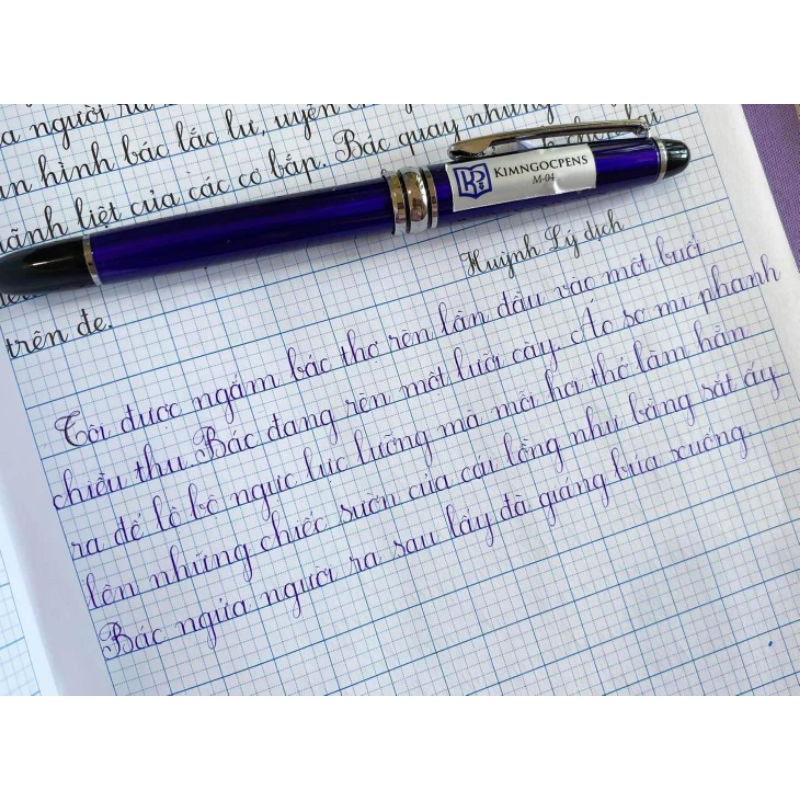 người ra
hình bác lắc lư, uyển
liệt của các cơ bắp. Bác quay những
trên đe.
KIMNGOCPENS
M-04
Huỳnh Lý dịch
Tôi được ngắm bác thợ rèn lần đầu vào một buổi
chiều thu. Bác đang rèn một lưỡi cày. Áo sơ mi phanh
ra để lồ bộ ngực lực lưỡng mà mỗi hơi thở làm hằn
lên những chiếc sườn của cái lồng như bằng sắt ấy
Bác ngửa người ra sau lấy đã giáng búa xuống.